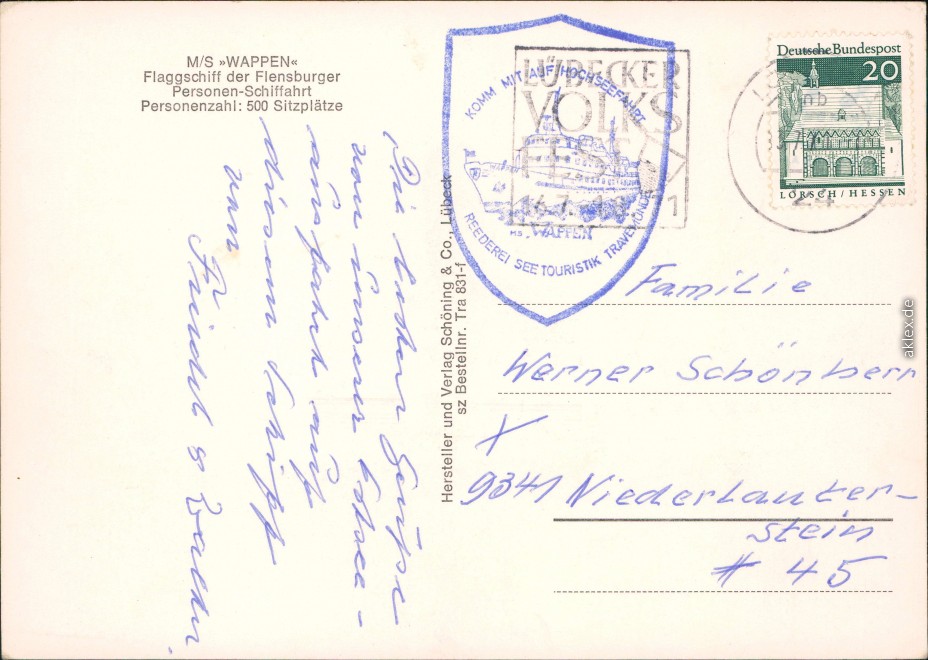 M/S »WAPPEN«
Flaggschiff der Flensburger
Personen-Schiffahrt
Personenzahl: 500 Sitzplätze
Die besten Grüße
von unserer Ostsee-
ausfahrt auf
diesem Schiff
von
Hersteller und Verlag Schöning & Co., Lübeck
sz Bestellnr. Tra 831-f
KOMM MIT AUF HOCHSEEFAHRT
WAPPEN
REEDEREI SEETOURISTIK TRAVEMÜNDE
LÜBECKER
VOLKS
FEST
Deutsche Bundespost
20
LORSCH/HESSEN
24
Familie
Werner Schönherr
X
9341 Niederlauter-
stein
# 45
aklex.de